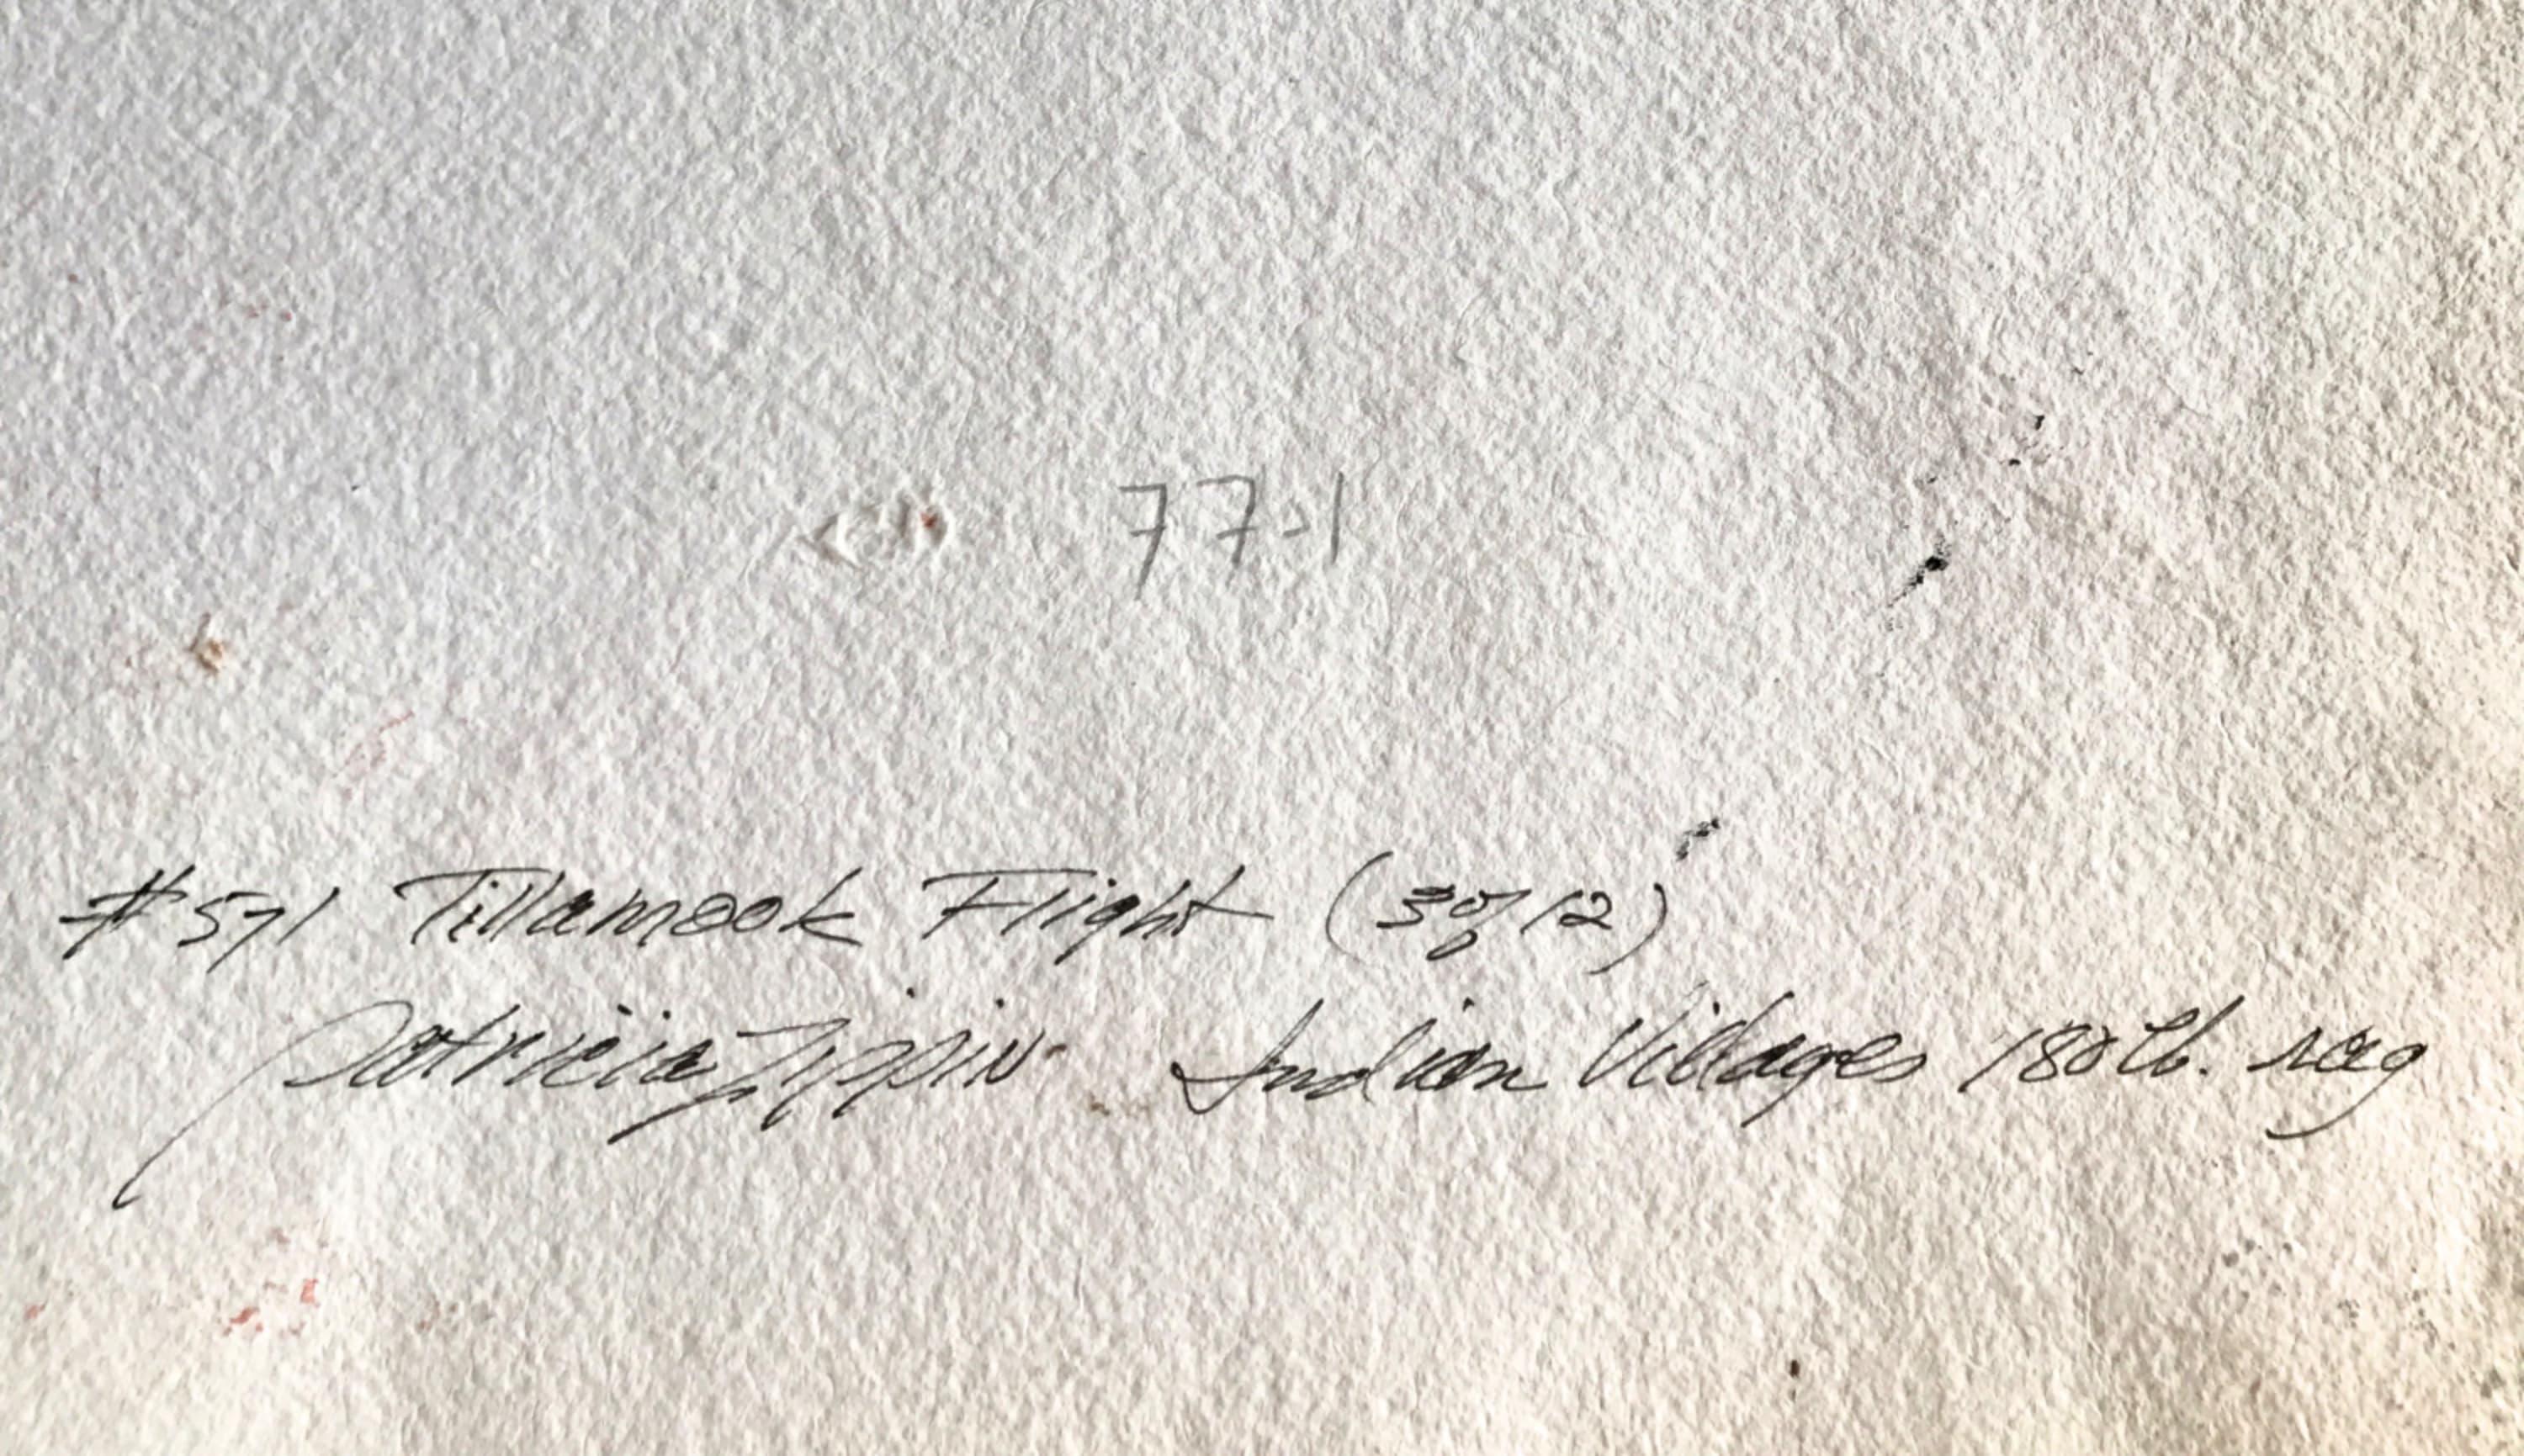 77-1
#571 Tillamook Flight (3 of 12)
Patricia Zippin Indian Villages 180 lb. rag